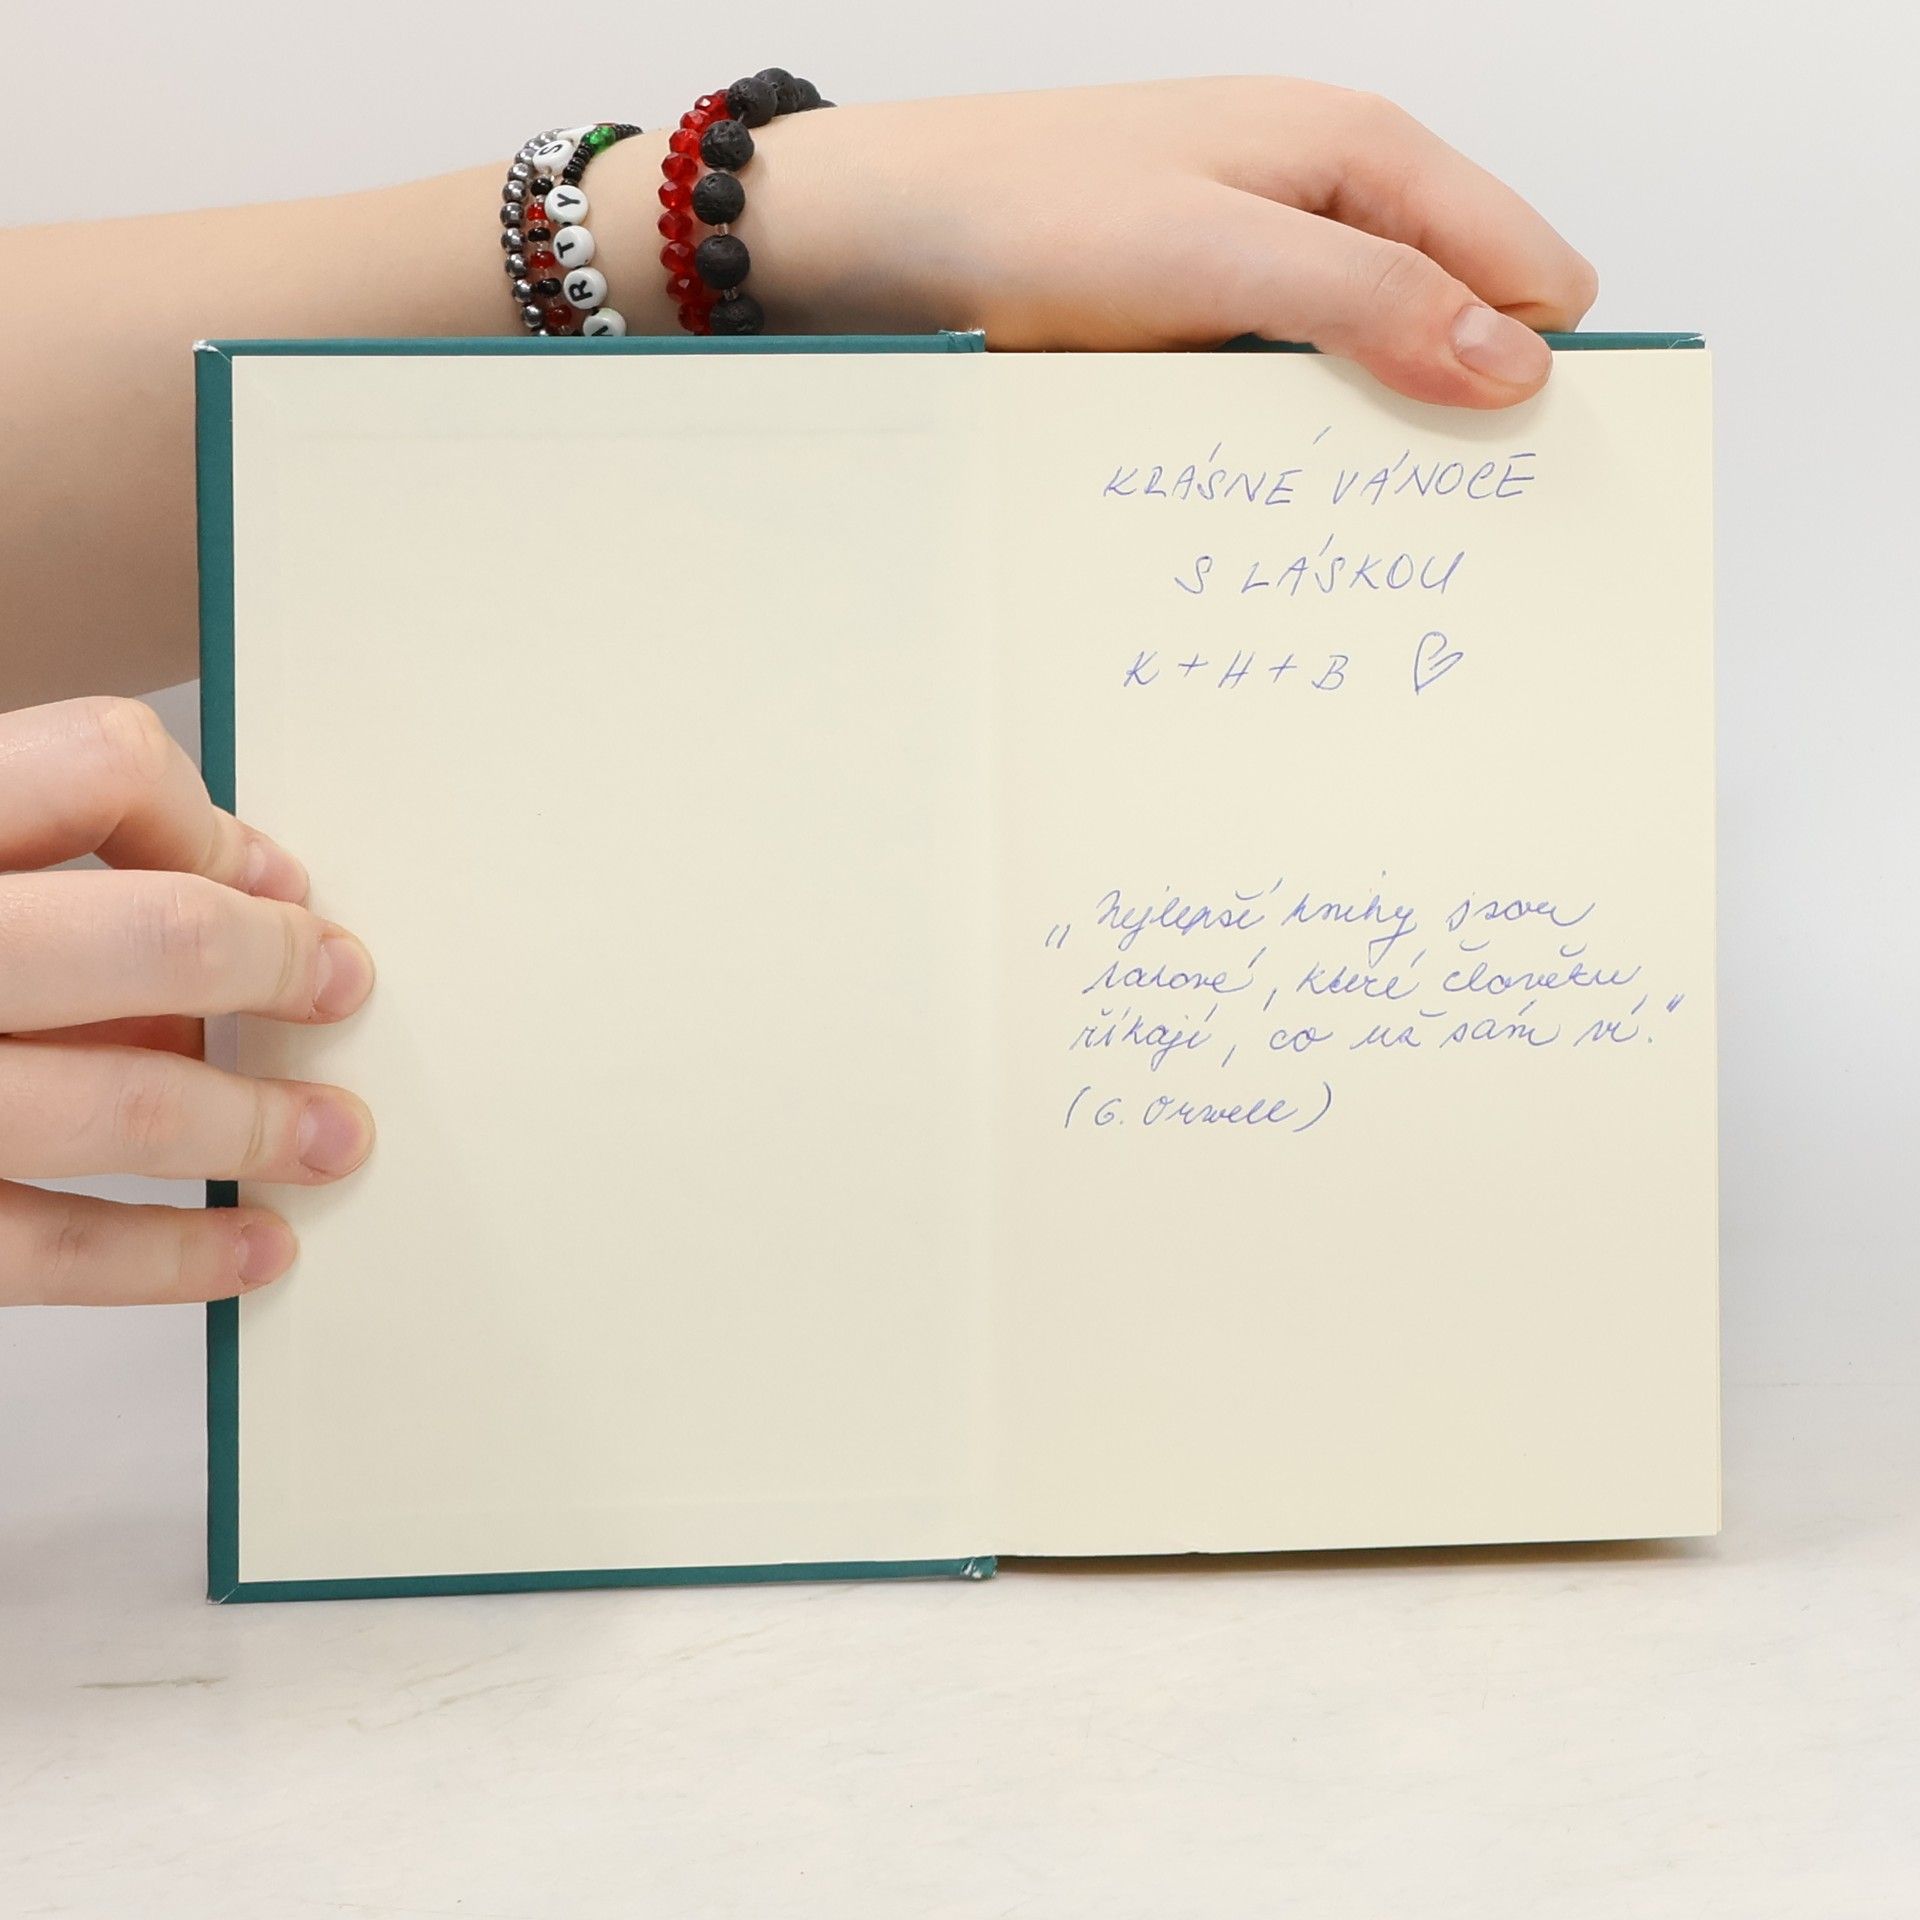 S
Y
T
R
A
KRÁSNÉ VÁNOCE
S LÁSKOU
K + H + B ♡
„Nejlepší knihy jsou
takové, které člověku
říkají, co už sám ví.“
(G. Orwell)